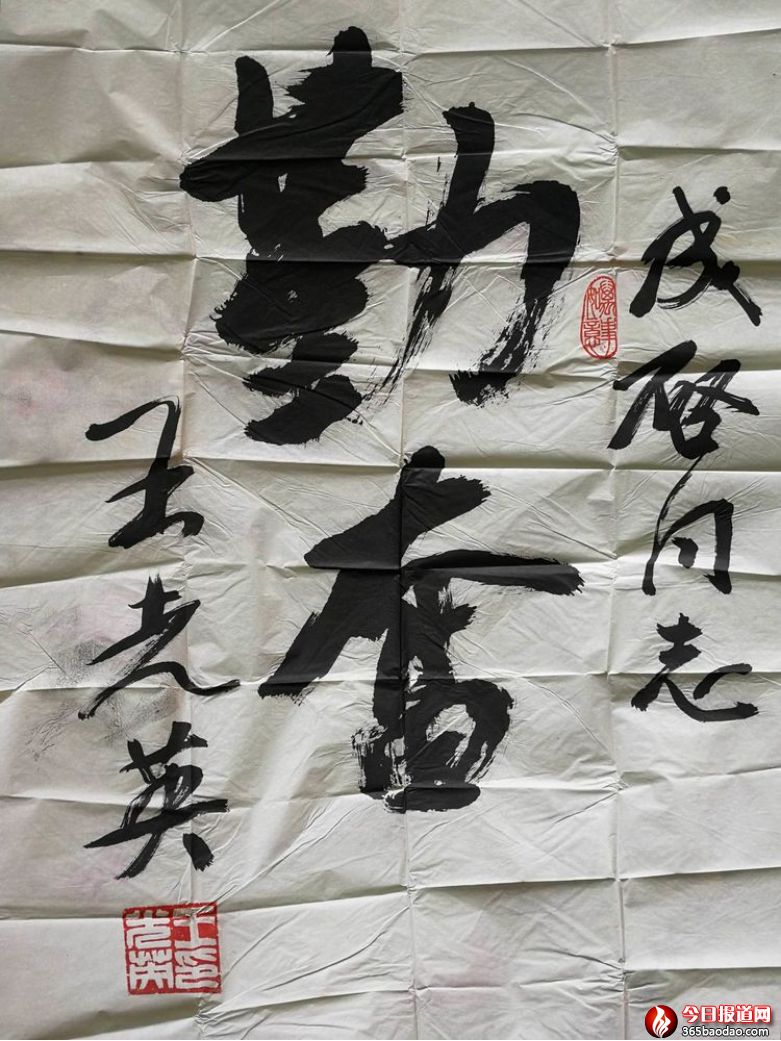 成啓同志
勤奋
王光英
王印光英
今日报道网
365baodao.com